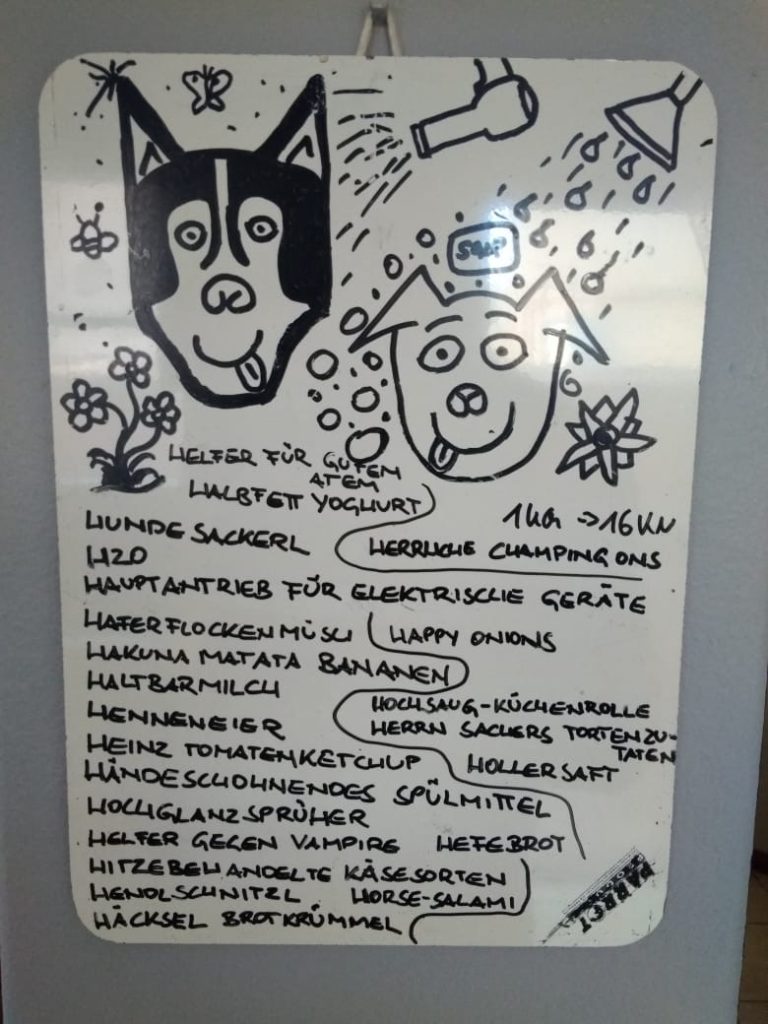 SOAP
HELFER FÜR GUTEN
ATEM
HALBFETT YOGHURT
1KG -> 16KN
HUNDESACKERL
HERRLICHE CHAMPINGONS
H2O
HAUPTANTRIEB FÜR ELEKTRISCHE GERÄTE
HAFERFLOCKENMÜSLI
HAPPY ONIONS
HAKUNA MATATA BANANEN
HALTBARMILCH
HOCHSAUG-KÜCHENROLLE
HENNENEIER
HERRN SACHERS TORTENZU-
TATEN
HEINZ TOMATENKETCHUP
HOLLERSAFT
HÄNDESCHONENDES SPÜLMITTEL
HOCHGLANZSPRÜHER
HELFER GEGEN VAMPIRE
HEFEBROT
HITZEBEHANDELTE KÄSESORTEN
HENDLSCHNITZL
HORSE-SALAMI
HÄCKSEL BROTKRÜMMEL
PARROT